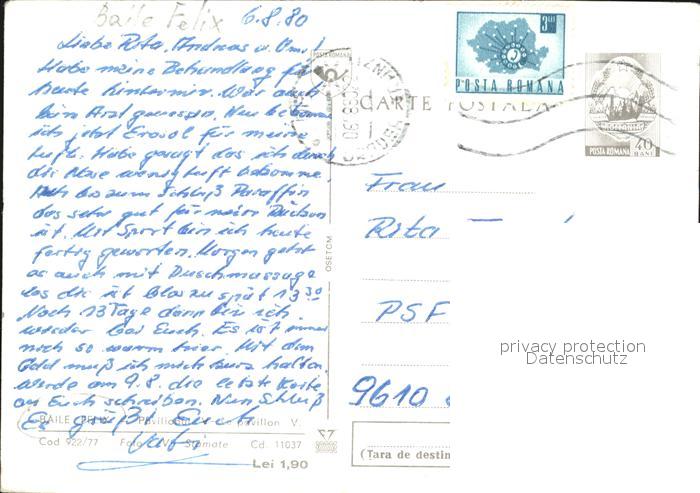 Baile Felix 6.8.80
Liebe Rita, Andreas u. Omi!
Habe meine Behandlung für
heute hinter mir. War auch
beim Arzt gewesen. Nun bekomme
ich jetzt für meine
Luft. Habe gesagt das ich durch
die Nase wenig Luft bekomme.
bis zum Schluß Paraffin
das sehr gut für mein Rücken
ist. Mit Sport bin ich heute
fertig geworden. Morgen geht
es auch mit Duschmassage
los die ist bloß zu spät 13 30
Noch 13 Tage dann bin ich
wieder bei Euch. Es ist immer
noch so warm hier. Mit dem
Geld muß ich mich kurz halten.
werde am 9.8. die letzte Karte
an Euch schreiben. Nun Schluß
Es grüßt Euch
Vati
BAILE FELIX Pavilion V.
Cod 922/77 Foto Stamate Cd. 11037
Lei 1,90
OSETCM
POSTA ROMANA
3 LEI
POSTA ROMANA
CARTE POSTALA
POSTA ROMANA 40 BANI
Frau
Rita
PSF
9610
(Țara de destin
privacy protection
Datenschutz